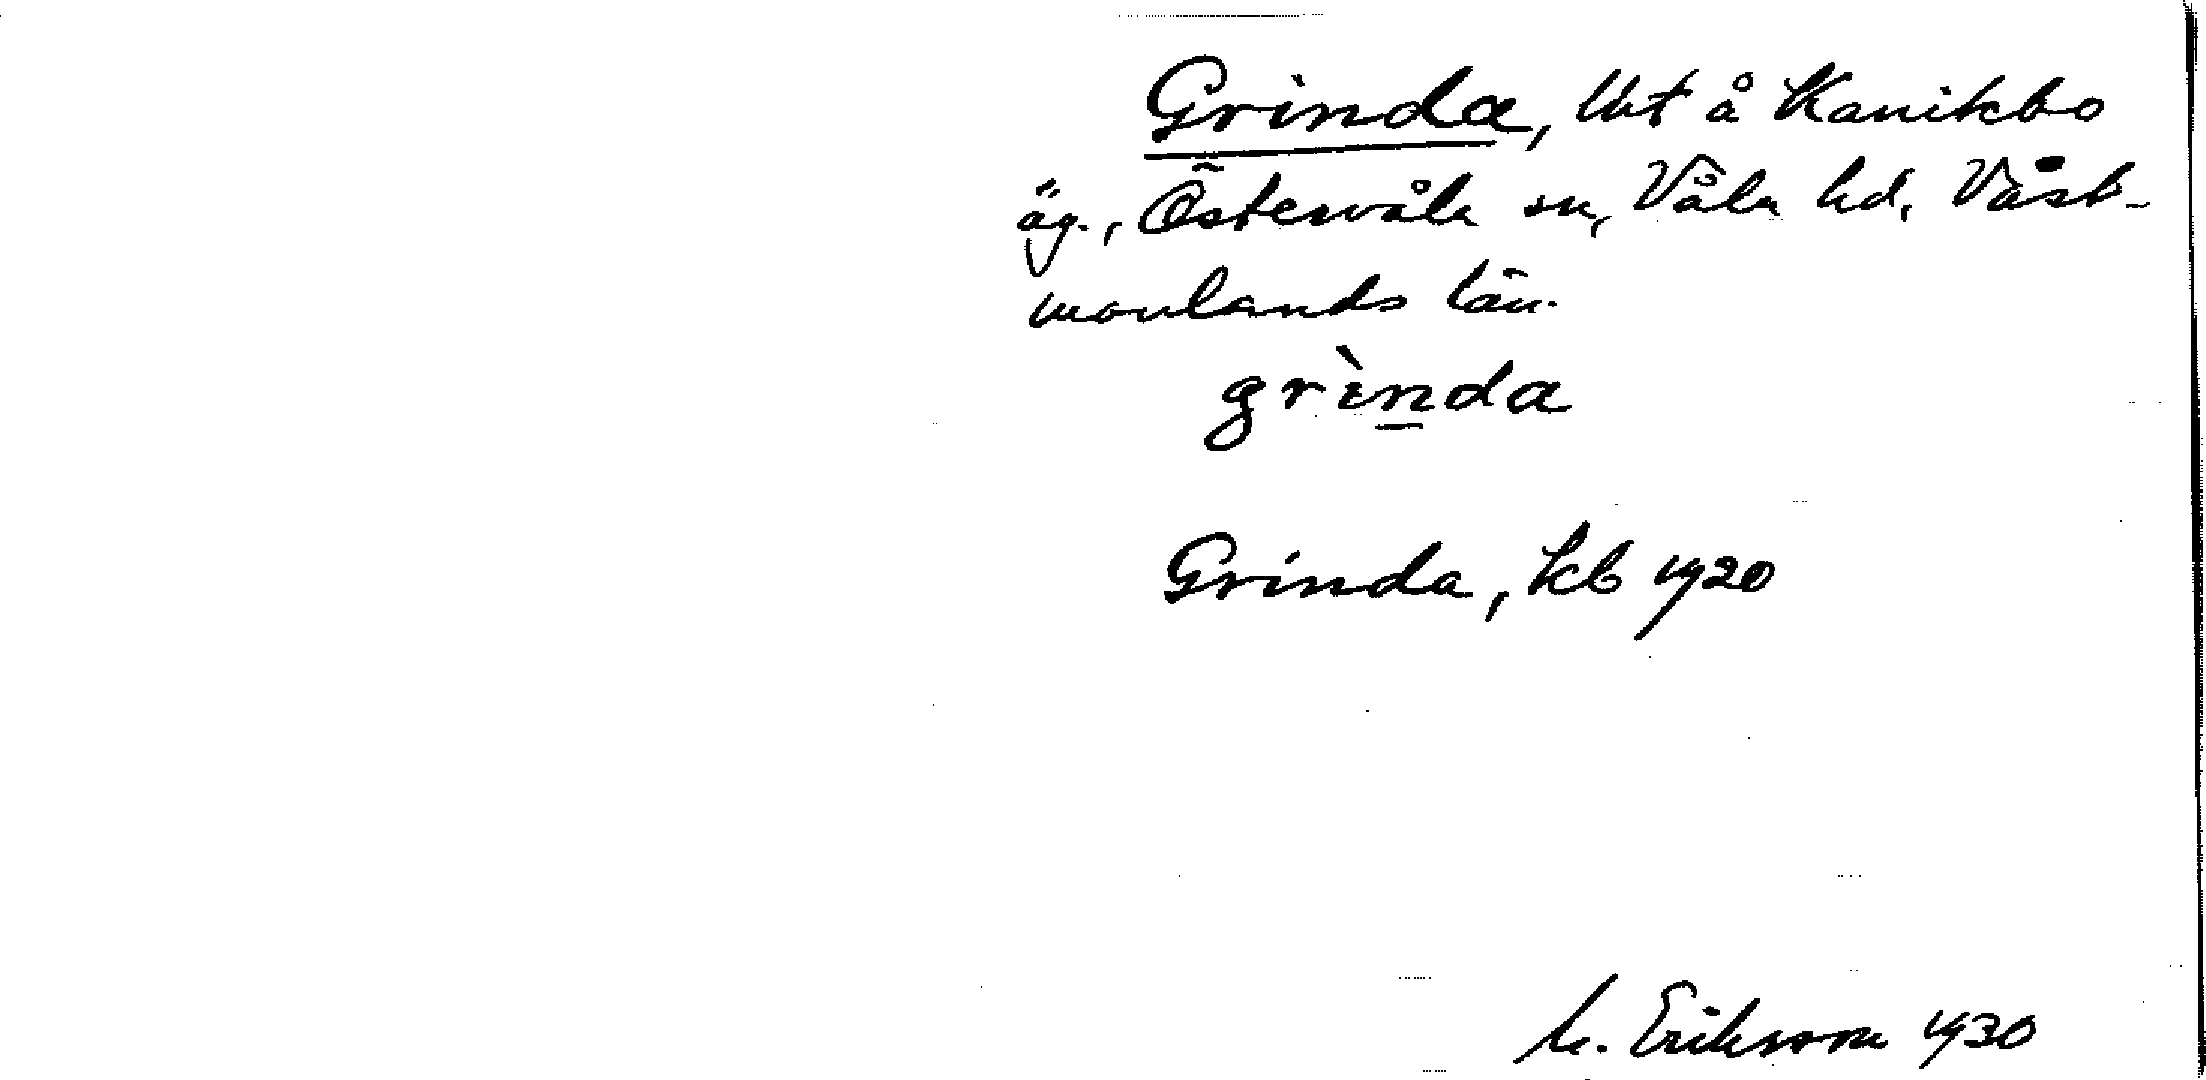 Grinda, lht å Kanikbo
äg., Östervåla sn, Våla hd, Väst-
manlands län.
grìnda
Grinda, kb 1920
M. Eriksson 1930